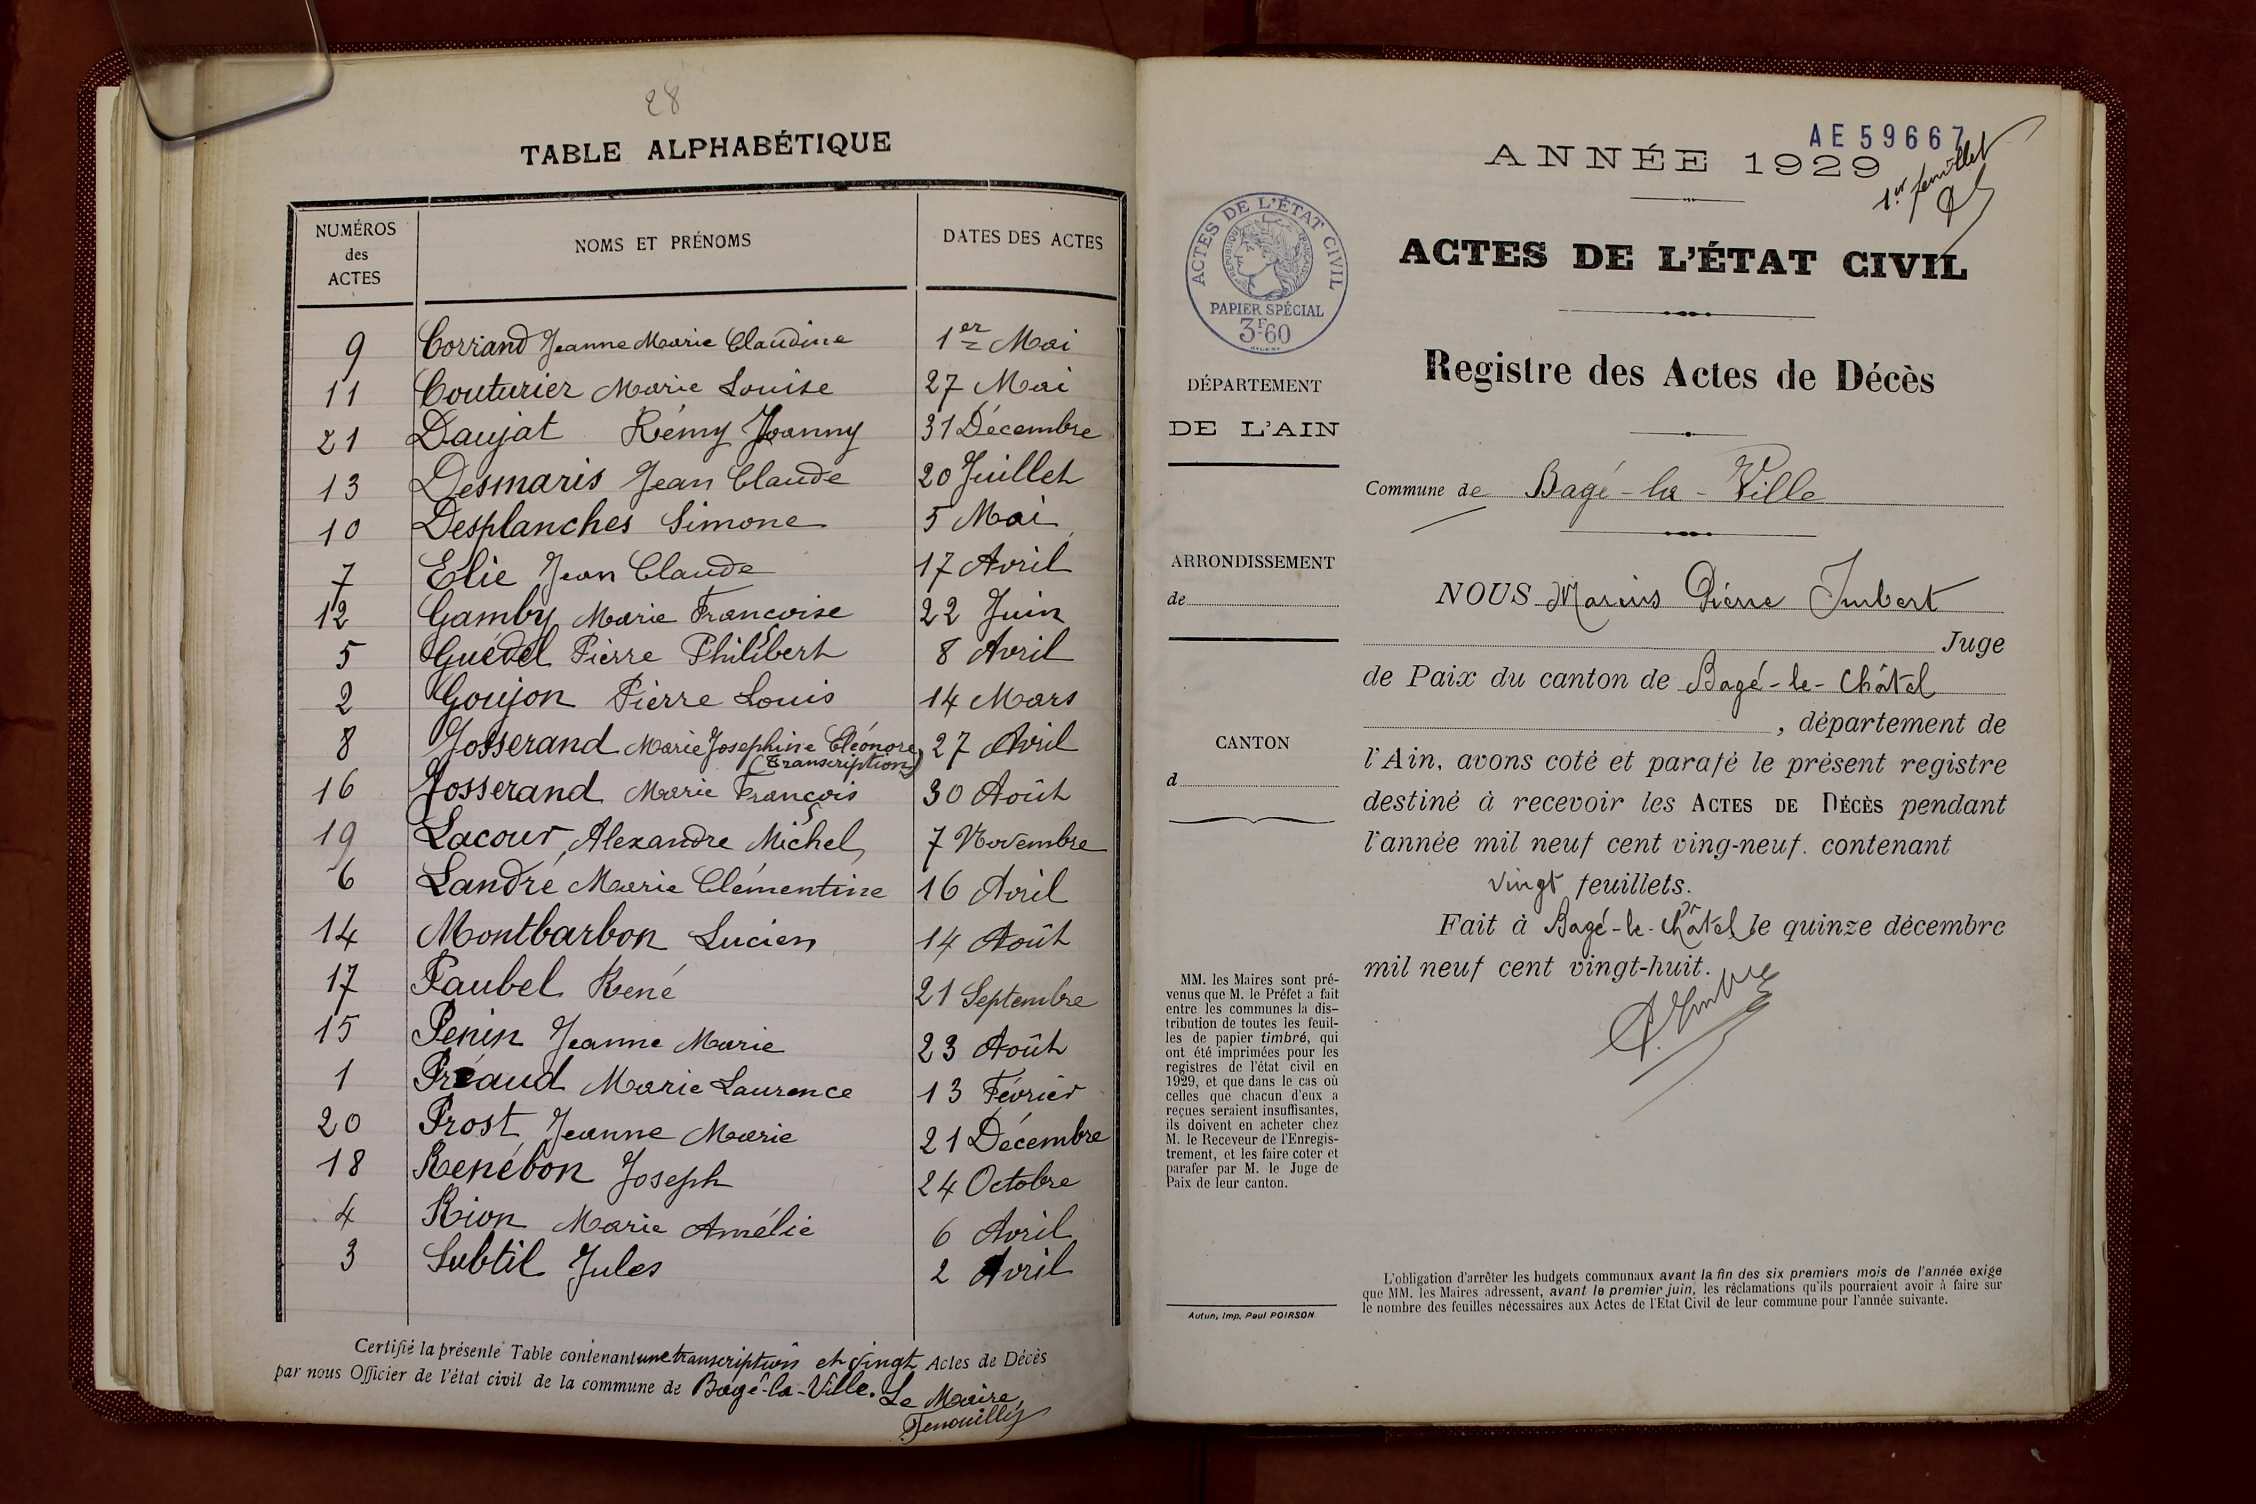 28
TABLE ALPHABÉTIQUE
NUMÉROS des ACTES NOMS ET PRÉNOMS DATES DES ACTES
9 Corrand Jeanne Marie Claudine 1er Mai
11 Couturier Marie Louise 27 Mai
21 Daujat Rémy Joanny 31 Décembre
13 Desmaris Jean Claude 20 Juillet
10 Desplanches Simone 5 Mai
7 Elie Jean Claude 17 Avril
12 Gamby Marie Françoise 22 Juin
5 Guédel Pierre Philibert 8 Avril
2 Goujon Pierre Louis 14 Mars
8 Josserand Marie Josephine Eléonore 27 Avril
(Transcription)
16 Josserand Marie François 30 Août
19 Lacour, Alexandre Michel, 7 Novembre
6 Landré Marie Clémentine 16 Avril
14 Montbarbon Lucien 14 Août
17 Paubel René 21 Septembre
15 Penin Jeanne Marie 23 Août
1 Préaud Marie Laurence 13 Février
20 Prost Jeanne Marie 21 Décembre
18 Renébon Joseph 24 Octobre
4 Rion Marie Amélie 6 Avril
3 Subtil Jules 2 Avril
Certifié la présente Table contenant une transcription et vingt Actes de Décès
par nous Officier de l'état civil de la commune de Bagé-la-Ville. Le Maire
Fenouillet
AE 59667
ANNÉE 1929
1er feuillet
ACTES DE L'ÉTAT CIVIL
RÉPUBLIQUE FRANÇAISE
PAPIER SPÉCIAL
3F60
ACTES DE L'ÉTAT CIVIL
Registre des Actes de Décès
DÉPARTEMENT
DE L'AIN
ARRONDISSEMENT
de
CANTON
d
MM. les Maires sont pré-
venus que M. le Préfet a fait
entre les communes la dis-
tribution de toutes les feuil-
les de papier timbré, qui
ont été imprimées pour les
registres de l'état civil en
1929, et que dans le cas où
celles que chacun d'eux a
reçues seraient insuffisantes,
ils doivent en acheter chez
M. le Receveur de l'Enregis-
trement, et les faire coter et
parafer par M. le Juge de
Paix de leur canton.
Autun, Imp. Paul POIRSON
Commune de Bagé-la-Ville
NOUS Marius Pierre Imbert
Juge
de Paix du canton de Bagé-le-Châtel
, département de
l'Ain, avons coté et parafé le présent registre
destiné à recevoir les ACTES DE DÉCÈS pendant
l'année mil neuf cent ving-neuf. contenant
vingt feuillets.
Fait à Bagé-le-Châtel le quinze décembre
mil neuf cent vingt-huit.
P. Imbert
L'obligation d'arrêter les budgets communaux avant la fin des six premiers mois de l'année exige
que MM. les Maires adressent, avant le premier juin, les réclamations qu'ils pourraient avoir à faire sur
le nombre des feuilles nécessaires aux Actes de l'Etat Civil de leur commune pour l'année suivante.